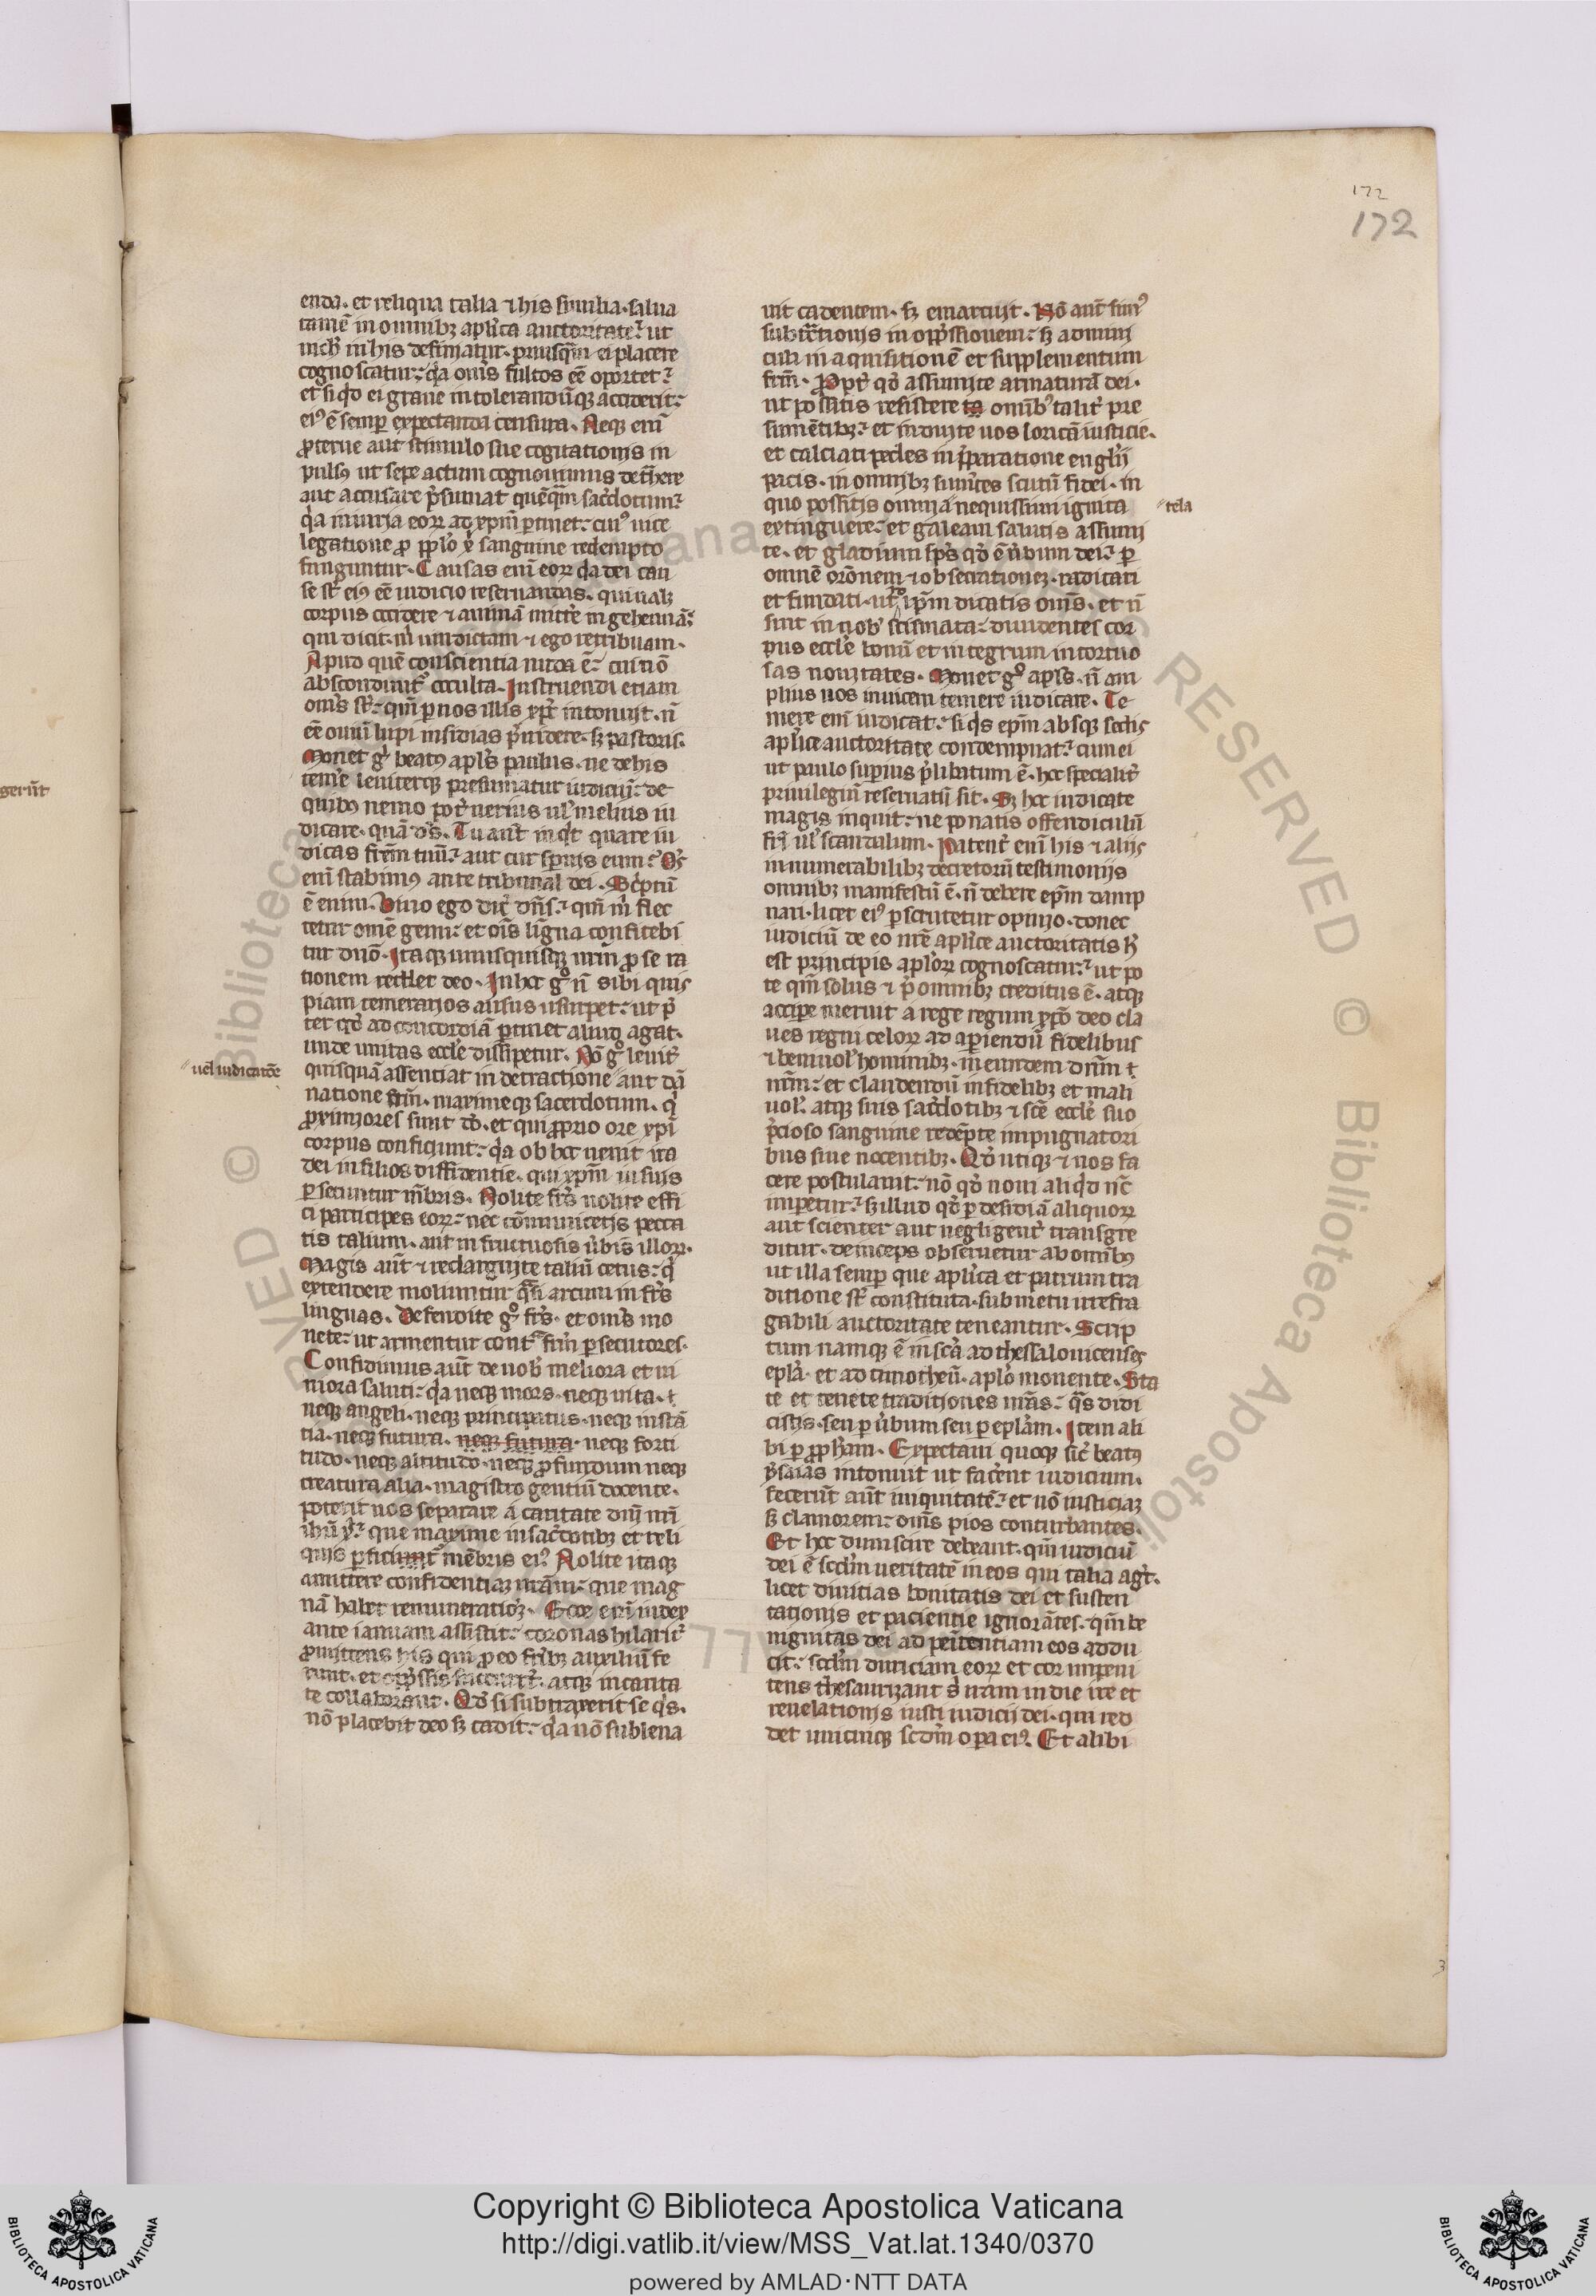 172
172
enda. et reliqua talia ⁊ his similia. salua
tam̄e in omnibꝫ apl̓ica auctoritate. ut
nich̓ in his definiatur. priusq̄m ei placere
cognoscatur. q̓a om̄s fultos ēe oportet.
et si qͥd ei graue intolerandūqꝫ acciderit.
eiꝰ ē semꝑ expectanda censura. Neqꝫ enī
ꝓterue aut stimulo sue cogitationis in
pulsꝰ ut sepe actum cognouimus det̓here
aut accusare p̓sumat quēq̄m sac̓dotum.
q̓a iniuria eoꝝ ad xp̄m ꝑtinet. cuiꝰ uice
legatione ꝓ pp̄lo xp̄i sanguine redempto
funguntur. Causas enī eoꝝ q̓a dei cau
se st̄ eiꝰ ēe iudicio reseruandas. qui ualꝫ
corpus occidere ⁊ animā mitt̓e in gehennā.
qui dicit. m̓ uindictam ⁊ ego retribuam.
Apud quē conscientia nuda ē. cui nō
abscondunt̓ occulta. Instruendi etiam
om̄s st̄. qm̄ ꝑ nos illis xp̄c intonuit. n̄
ēe ouiū lupi insidias p̓uidere. sꝫ pastoris.
Monet gͦ beatꝰ apl̓s paulus. ne de his
tem̓e leuiterqꝫ presumatur iudiciū. de
quibꝰ nemo pot̓ uerius ul̓ melius iu
dicare. quā d̄s. Tu aut̄ inqͥt quare iu
dicas fr̄em tuū. aut cur spernis eum. Om̄s
enī stabimꝰ ante tribunal dei. Sc̓ptū
ē enim. Viuo ego dic̓ dn̄s. qm̄ m̓ flec
tetur om̄e genu. et ois̄ lingua confitebi
tur dn̄o. Itaqꝫ unusquisqꝫ nr̄m ꝓ se ra
tionem reddet deo. In hoc gͦ n̄ sibi quis
piam temerarios ausus usurpet. ut p̓
ter qd̓ ad concordiā ꝑtinet aliud agat.
unde unitas eccl̓e dissipetur. Nō gͦ leuit̓
quisquā assentiat in detractione " aut dā
" uel iudicatōe
natione fr̄m. maximeqꝫ sacerdotum. q̓
ꝓximiores sunt dō. et qui ꝓprio ore xp̄i
corpus conficiunt. q̓a ob hoc uenit ira
dei in filios diffidentie. qui xp̄m in suis
ꝑsecuntur mēbris. Nolite fr̄s nolite effi
ci participes eoꝝ. nec cōmunicetis pecca
tis talium. aut infructuosis ūbis illoꝝ.
Magis aut̄ ⁊ redarguite taliū cetus. q̓
extendere moliuntur q̓si arcum in fr̄s
linguas. Defendite gͦ fr̄s. et om̄s mo
nete. ut armentur cont̓ fr̄m ꝑsecutores.
Confidimus aut̄ de uob̓ meliora et ui
ciniora saluti. q̓a neqꝫ mors. neqꝫ uita. ⁊
neqꝫ angeli. neqꝫ principatus. neqꝫ instā
tia. neqꝫ futura. neqꝫ futura. neqꝫ forti
tudo. neqꝫ altitudo. neqꝫ ꝓfundum neqꝫ
creatura alia. magistro gentiū docente.
poterit nos separare a caritate dn̄i nr̄i
ih̄u xp̄i. que maxime in sac̓dotibꝫ et reli
quis ꝑficiunt̓ mēbris eiꝰ. Nolite itaqꝫ
amittere confidentiaꝫ ur̄am. que mag
nā habet remunerationeꝫ. Ecce enī iudex
ante ianuam assistit. coronas hilarit̓
ꝓmittens his qui ꝓ eo fr̄ibꝫ auxiliū fe
runt. et opp̓ssis succurr̄t. atqꝫ in carita
te collaborant. Qd̓ si subtraxerit se qͥs.
nō placebit deo sꝫ cadit. q̓a nō subleua
uit cadentem. sꝫ emarcuit. Nō aut̄ simꝰ
subtc̄tionis in opp̓ssionem. sꝫ adiuuī
culi in aquisitionē et supplementum
fr̄m. Propt̓ qd̓ assumite armaturā dei.
ut possitis resistere ta omībꝰ talit̓ pre
sumētibꝫ. et induite uos loricā iusticie.
et calciati pedes in p̓paratione eug̓lii
pacis. in omnibꝫ sum̓tes scutū fidei. in
quo possitis omnia " nequissimi ignita
" tela
extinguere. et galeam salutis assumi
te. et gladium sp̄s qd̓ ē ūbum dei. ꝑ
omnē or̄onem ⁊ obsecrationeꝫ. radicati
et fundati. ut idip̄m dicatis om̄s. et n̄
sint in nob̓ scismata. diuidentes cor
pus eccl̓e bonū et integrum in tortuo
sas nouitates. Monet gͦ apl̓s. n̄ am
plius uos inuicem temere iudicare. Te
mere enī iudicat. si qͥs ep̄m absqꝫ sedis
apl̓ice auctoritate condempnat. cum ei
ut paulo superius p̓libatum ē. hoc specialit̓
priuilegiū reseruatū sit. Sꝫ hoc iudicate
magis inquit. ne ponatis offendiculū
fr̄i ul̓ scandalum. Patent̓ enī his ⁊ aliis
innumerabilibꝫ decretorū testimoniis
omnibꝫ manifestū ē. n̄ debere ep̄m damp
nari. licet eiꝰ ꝑscrutetur opinio. donec
iudiciū de eo nr̄e apl̓ice auctoritatis h̓
est principis apl̓oꝝ cognoscatur. ut po
te qm̄ solus ⁊ p̓ omnibꝫ creditus ē. atqꝫ
accipe meruit a rege regum xp̄o deo cla
ues regni celoꝝ ad aperiendū fidelibus
⁊ beniuol̓ hominibꝫ. in eundem dn̄m ⁊
nr̄m. et claudendū infidelibꝫ et mali
uol̓. atqꝫ suis sac̓dotibꝫ ⁊ sc̄e eccl̓e suo
p̓cioso sanguine redēpte impugnatori
bus siue nocentibꝫ. Qd̓ utiqꝫ ⁊ nos fa
cere postulauit. nō qd̓ noui aliqͥd nc̄
imperetur. sꝫ illud qd̓ ꝑ desidiā aliquoꝝ
aut scienter aut negligent̓ transgre
ditur. deinceps obseruetur ab omībꝰ
ut illa semꝑ que apl̓ica et patrum tra
ditione st̄ constituta. sub metu irrefra
gabili auctoritate teneantur. Scrip
tum namqꝫ ē in sc̄a ad thessalonicenses
epl̓a. et ad timotheū. apl̓o monente. Sta
te et tenete traditiones nr̄as. q̓s didi
cistis. seu ꝑ ūbum seu ꝑ epl̓am. Item ali
bi ꝑ ꝓph̓am. Expectaui quoqꝫ sic̓ beatꝰ
ysaias intonuit ut fac̓ent iudicium.
fecerūt aut̄ iniquitatē. et nō iusticiaꝫ
sꝫ clamorem. om̄s pios conturbantes.
Et hoc dum scire debeant. qm̄ iudiciū
dei ē scd̄m ueritatē in eos qui talia agt̄.
licet diuitias bonitatis dei et susten
tationis et pacientie ignorātes. qm̄ be
nignitas dei ad penitentiam eos addu
cit. scd̄m duriciam eoꝝ et cor impeni
tens thesaurizant s̓ iram in die ire et
reuelationis iusti iudicii dei. qui red
det unicuiqꝫ scdm̄ oꝑa eiꝰ. Et alibi
gerūt
3
Copyright © Biblioteca Apostolica Vaticana
http://digi.vatlib.it/view/MSS_Vat.lat.1340/0370
powered by AMLAD·NTT DATA
BIBLIOTECA APOSTOLICA VATICANA
BIBLIOTECA APOSTOLICA VATICANA